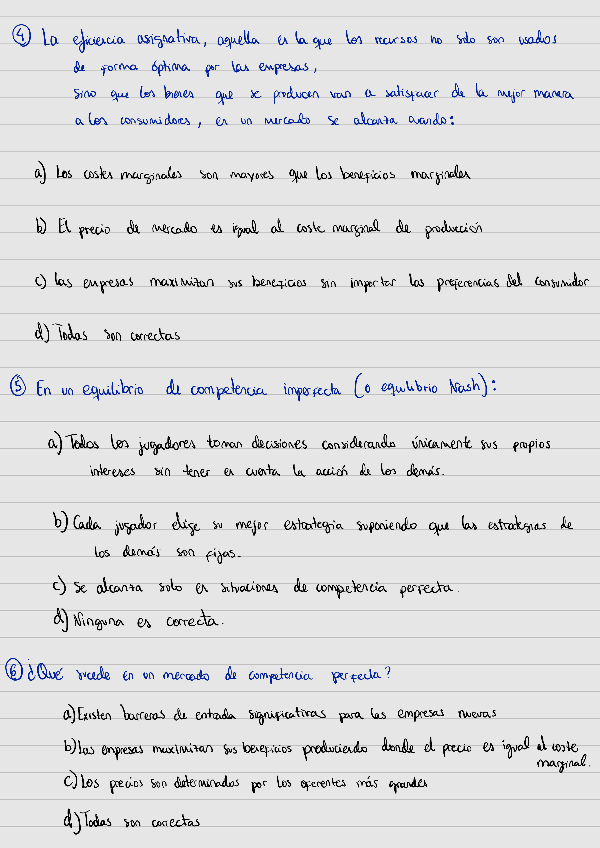 ④ La eficiencia asignativa, aquella en la que los recursos no solo son usados
de forma óptima por las empresas,
sino que los bienes que se producen van a satisfacer de la mejor manera
a los consumidores, en un mercado se alcanza cuando:
a) Los costes marginales son mayores que los beneficios marginales
b) El precio de mercado es igual al coste marginal de producción
c) Las empresas maximizan sus beneficios sin importar las preferencias del consumidor
d) Todas son correctas
⑤ En un equilibrio de competencia imperfecta (o equilibrio Nash):
a) Todos los jugadores toman decisiones considerando únicamente sus propios
intereses sin tener en cuenta la acción de los demás.
b) Cada jugador elige su mejor estrategia suponiendo que las estrategias de
los demás son fijas.
c) Se alcanza solo en situaciones de competencia perfecta.
d) Ninguna es correcta.
⑥ ¿Qué sucede en un mercado de competencia perfecta?
a) Existen barreras de entrada significativas para las empresas nuevas
b) Las empresas maximizan sus beneficios produciendo donde el precio es igual al coste
marginal.
c) Los precios son determinados por los oferentes más grandes
d) Todas son correctas